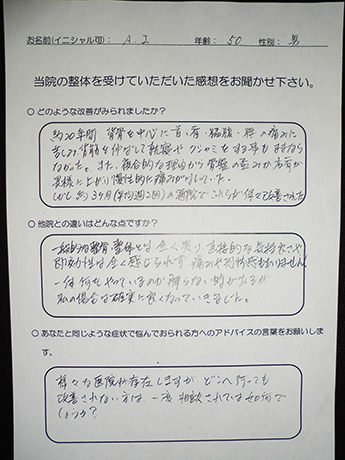 お名前(イニシャル可): A.I 年齢: 50 性別: 男
当院の整体を受けていただいた感想をお聞かせ下さい。
○ どのような改善がみられましたか?
約20年間 背骨を中心に首、肩、脇腹、の痛みに
苦しみ、背筋を伸ばして執務やクシャミをする事もままなら
なかった。また、複合的な理由から骨盤の歪みが右肩が
異様に上がり慢性的に痛みが
しかし約3ヶ月(平均週2回)の通院でこれらが徐々に改善された
○ 他院との違いはどんな点ですか?
一般的な整骨、整体とは全く異り、直接的な
即効性は全く感じられず、痛みや もありません
一体何をやっているのか解らない のだが
私の場合は確実に良くなっていきました。
○ あなたと同じような症状で悩んでおられる方へのアドバイスの言葉をお願いしま
す。
様々な医院が存在しますが、どこへ行っても
改善されない方は、一度相談されては如何で
しょうか?